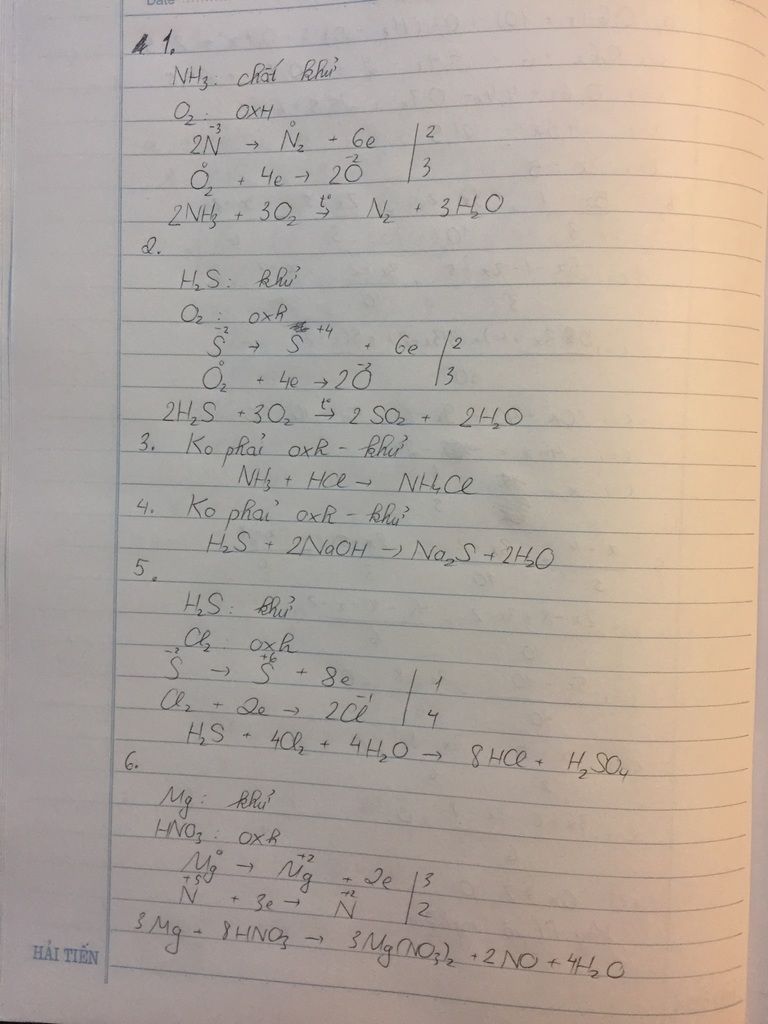 Date
1.
NH₃: chất khử
O₂: OXH
2N⁻³ → N⁰₂ + 6e | 2
O⁰₂ + 4e → 2O⁻² | 3
2NH₃ + 3O₂ t°→ N₂ + 3H₂O
2.
H₂S: khử
O₂: oxh
S⁻² → S⁺⁴ + 6e | 2
O⁰₂ + 4e → 2O⁻² | 3
2H₂S + 3O₂ t°→ 2SO₂ + 2H₂O
3. Ko phải oxh - khử
NH₃ + HCl → NH₄Cl
4. Ko phải oxh - khử
H₂S + 2NaOH → Na₂S + 2H₂O
5.
H₂S: khử
Cl₂: oxh
S⁻² → S⁺⁶ + 8e | 1
Cl₂ + 2e → 2Cl⁻¹ | 4
H₂S + 4Cl₂ + 4H₂O → 8HCl + H₂SO₄
6.
Mg: khử
HNO₃: oxh
Mg⁰ → Mg⁺² + 2e | 3
N⁺⁵ + 3e → N⁺² | 2
3Mg + 8HNO₃ → 3Mg(NO₃)₂ + 2NO + 4H₂O
HẢI TIẾN